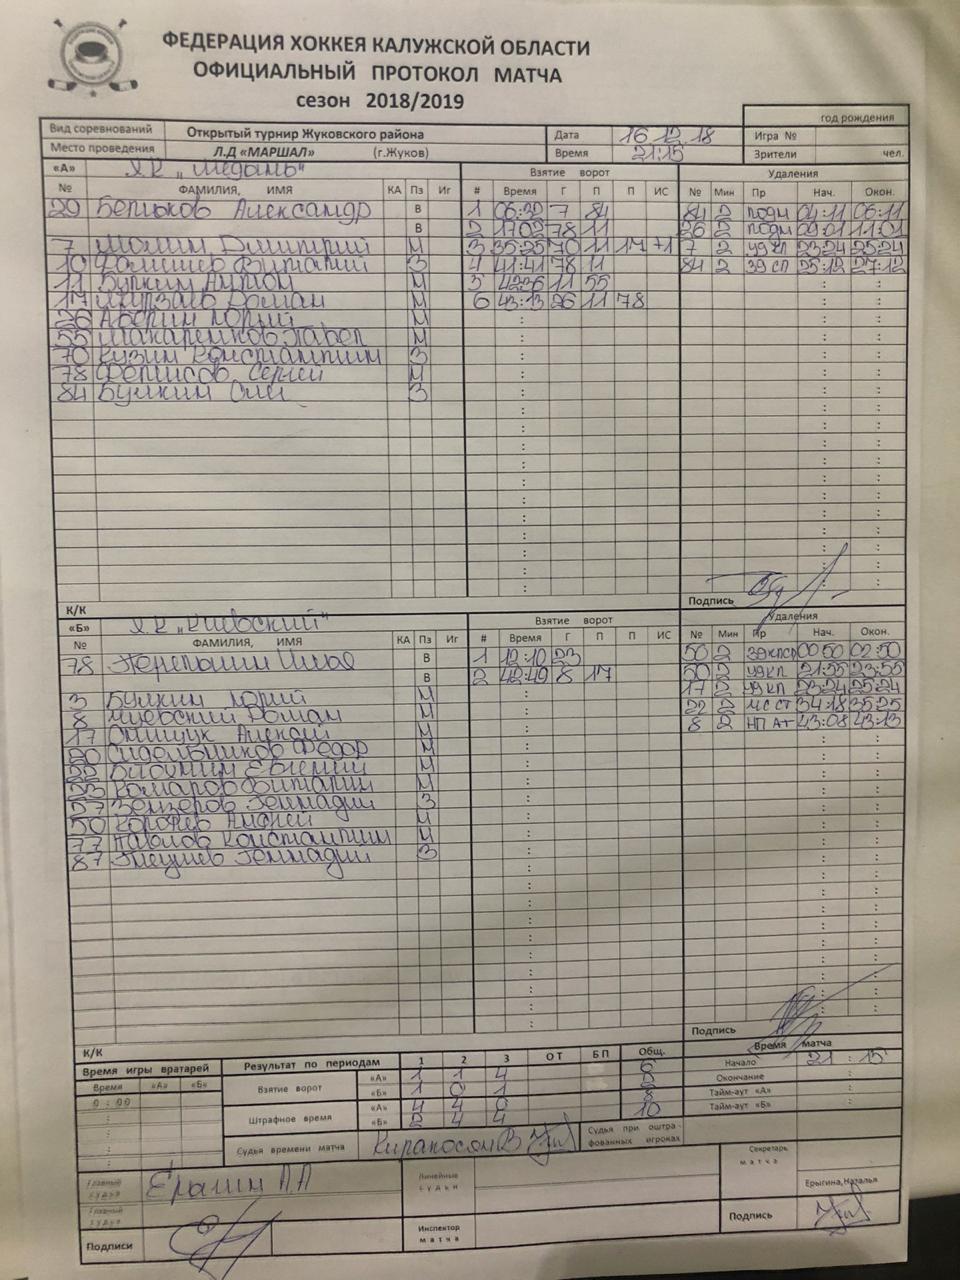 ФЕДЕРАЦИЯ ХОККЕЯ КАЛУЖСКОЙ ОБЛАСТИ
ОФИЦИАЛЬНЫЙ ПРОТОКОЛ МАТЧА
сезон 2018/2019
год рождения
Вид соревнований Открытый турнир Жуковского района Дата 16 12 18 Игра №
Место проведения Л.Д «МАРШАЛ» (г.Жуков) Время 21:15 Зрители чел.
«А» ХК „Медынь" Взятие ворот Удаления
№ ФАМИЛИЯ, ИМЯ КА Пз Иг # Время Г П П ИС № Мин Пр Нач. Окон.
29 Александр В 1 06:32 7 84 84 2 подн 04:11 06:11
В 2 17 02 78 11 26 2 подн 09:01 11:01
7 Дмитрий М 3 35:25 70 11 17 +1 7 2 23:24 25:24
10 Виталий З 4 41:41 78 11 84 2 25:12 27:12
11 Булкин Антон М 5 42 36 11 55
17 Мурзаев Роман М 6 43:13 26 11 78
26 Аверин Юрий М
55 Макаренков Павел М
70 Кузин Константин З
78 Фетисов Сергей М
84 Булкин Олег З
К/К Подпись
«Б» ХК „Киевский" Взятие ворот Удаления
№ ФАМИЛИЯ, ИМЯ КА Пз Иг # Время Г П П ИС № Мин Пр Нач. Окон.
78 Илья В 1 12:10 23 50 2 00 50 02:50
В 2 42:49 8 17 50 2 21:55 23:55
3 Булкин Юрий М 17 2 23:24 25:24
8 Роман М 22 2 34:18 35:25
17 Онищук Алексей М 8 2 НП АТ 43:08 43:13
20 Сидельников Федор М
22 Евгений М
23 Комаров Виталий М
37 Геннадий З
50 Королев Андрей М
77 Павлов Константин М
87 Геннадий З
К/К Подпись
Время игры вратарей Результат по периодам 1 2 3 ОТ БП Общ. Время матча
Время «А» «Б» Взятие ворот «А» 1 1 4 6 Начало 21:15
0:00 «Б» 1 0 1 2 Окончание
Штрафное время «А» 4 4 0 8 Тайм-аут «А»
«Б» 2 4 4 10 Тайм-аут «Б»
Судья времени матча Киракосян В Судья при оштрафованных игроках
Главный судья Ерашин А.А Линейные судьи Секретарь матча
Главный судья Ерыгина,Наталья
Подписи Инспектор матча Подпись